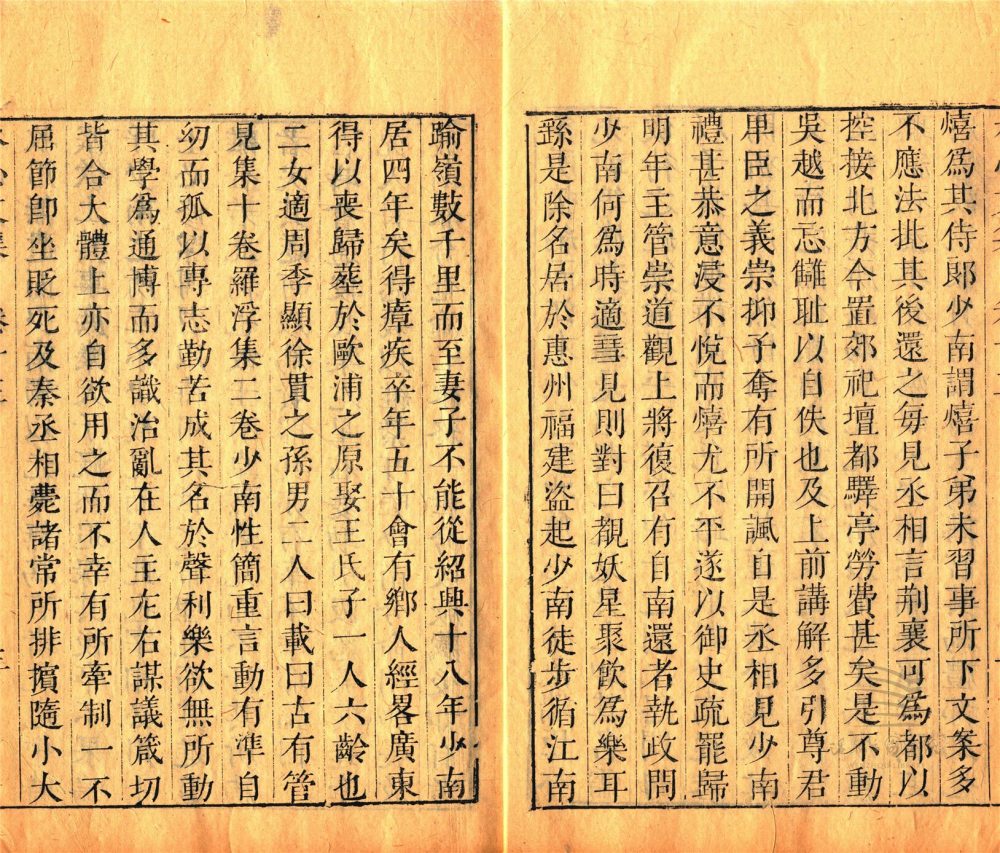 熺為其侍郞少南謂熺子弟未習事所下文案多
不應法批其後還之每見丞相言荆襄可為都以
控接北方今置郊祀壇都驛亭勞費甚矣是不動
吳越而忘讎耻以自佚也及上前講解多引尊君
卑臣之義崇抑予奪有所開諷自是丞相見少南
禮甚恭意浸不悅而熺尤不平遂以御史疏罷歸
明年主管崇道觀上將復召有自南還者執政問
少南何為時適彗見則對曰覩妖星聚飲為樂耳
繇是除名居於惠州福建盜起少南徒步循江南
踰嶺數千里而至妻子不能從紹興十八年少南
居四年矣得瘴疾卒年五十會有鄉人經畧廣東
得以喪歸塟於歐浦之原娶王氏子一人六齡也
二女適周季顯徐貫之孫男二人曰載曰古有管
見集十卷羅浮集二卷少南性簡重言動有準自
㓜而孤以專志勤苦成其名於聲利樂欲無所動
其學為通博而多識治亂在人主左右謀議箴切
皆合大體上亦自欲用之而不幸有所牽制一不
屈節卽坐貶死及秦丞相薨諸常所排擯隨小大